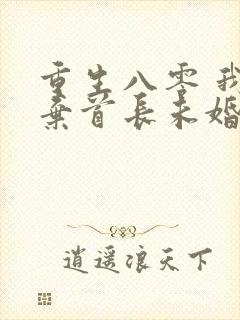 重生八零 我
弃首长未婚
逍遥浪天下